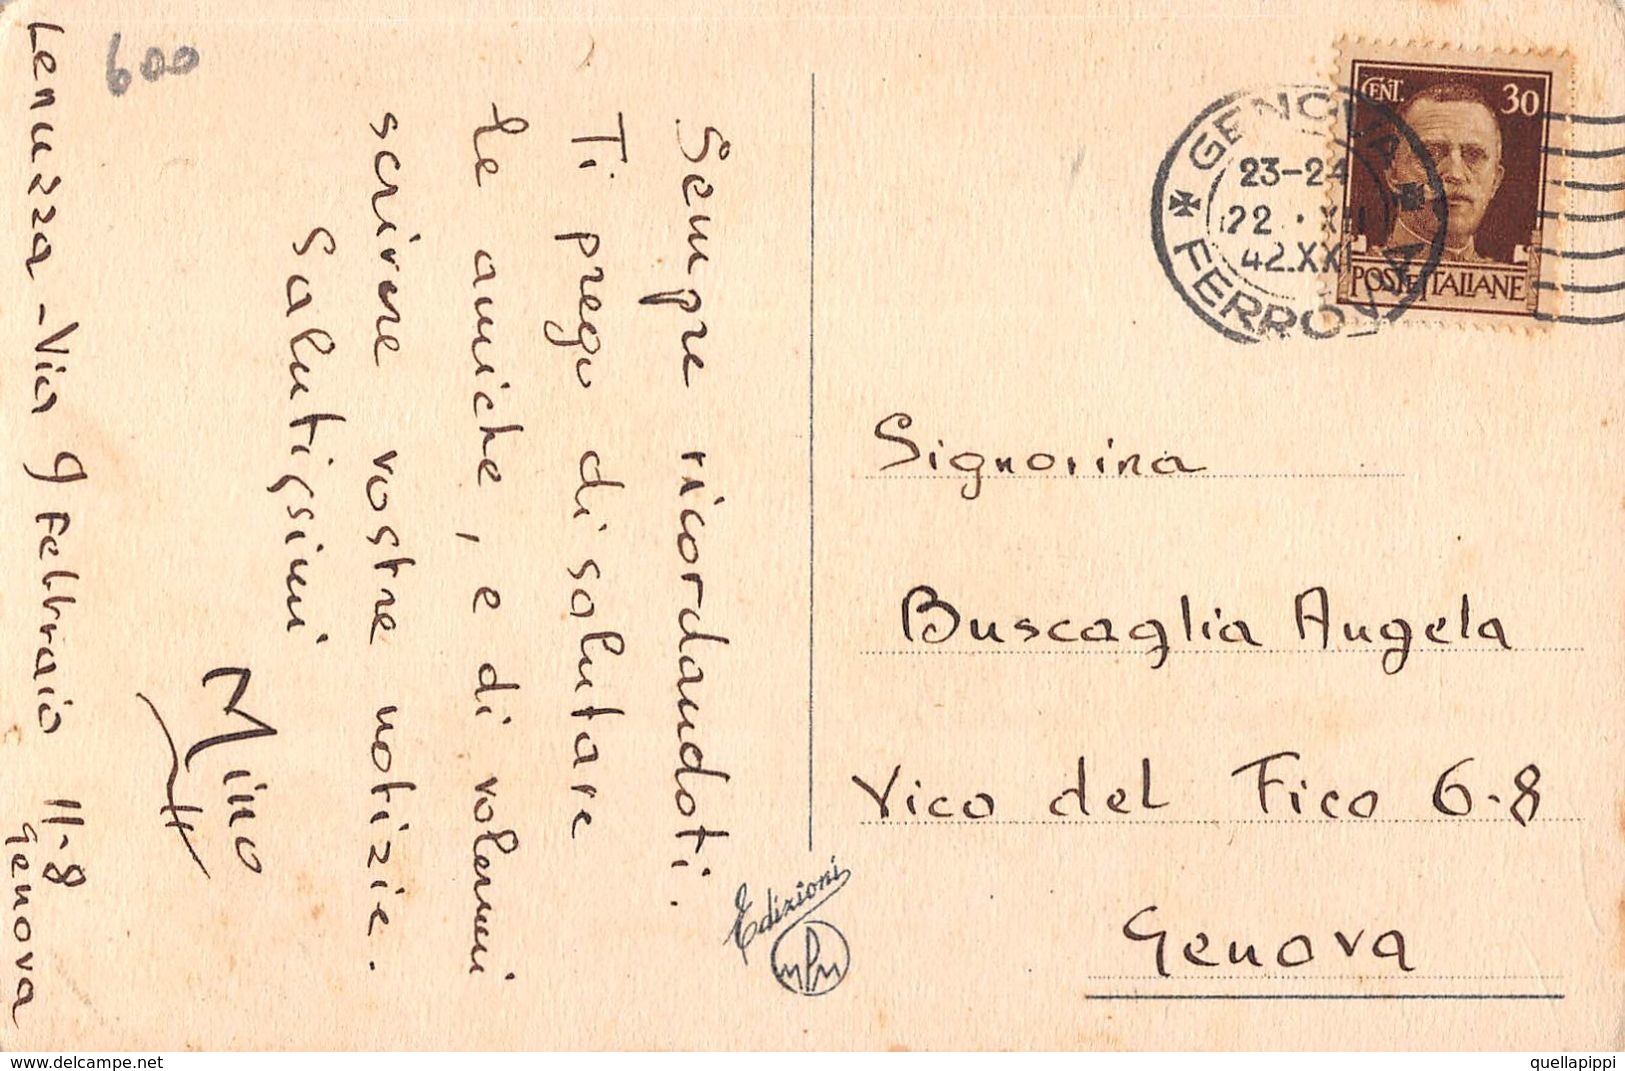 600
Sempre ricordandoti.
Ti prego di salutare
le amiche, e di volermi
scrivere vostre notizie.
Salutissimi
Mino
Lenuzza - Via 9 Febbraio 11-8
Genova
Edizioni
GENOVA
FERROVIA
23-24
22. XII
42.XXI
CENT. 30
POSTE ITALIANE
Signorina
Buscaglia Angela
Vico del Fico 6-8
Genova
www.delcampe.net
quellapippi